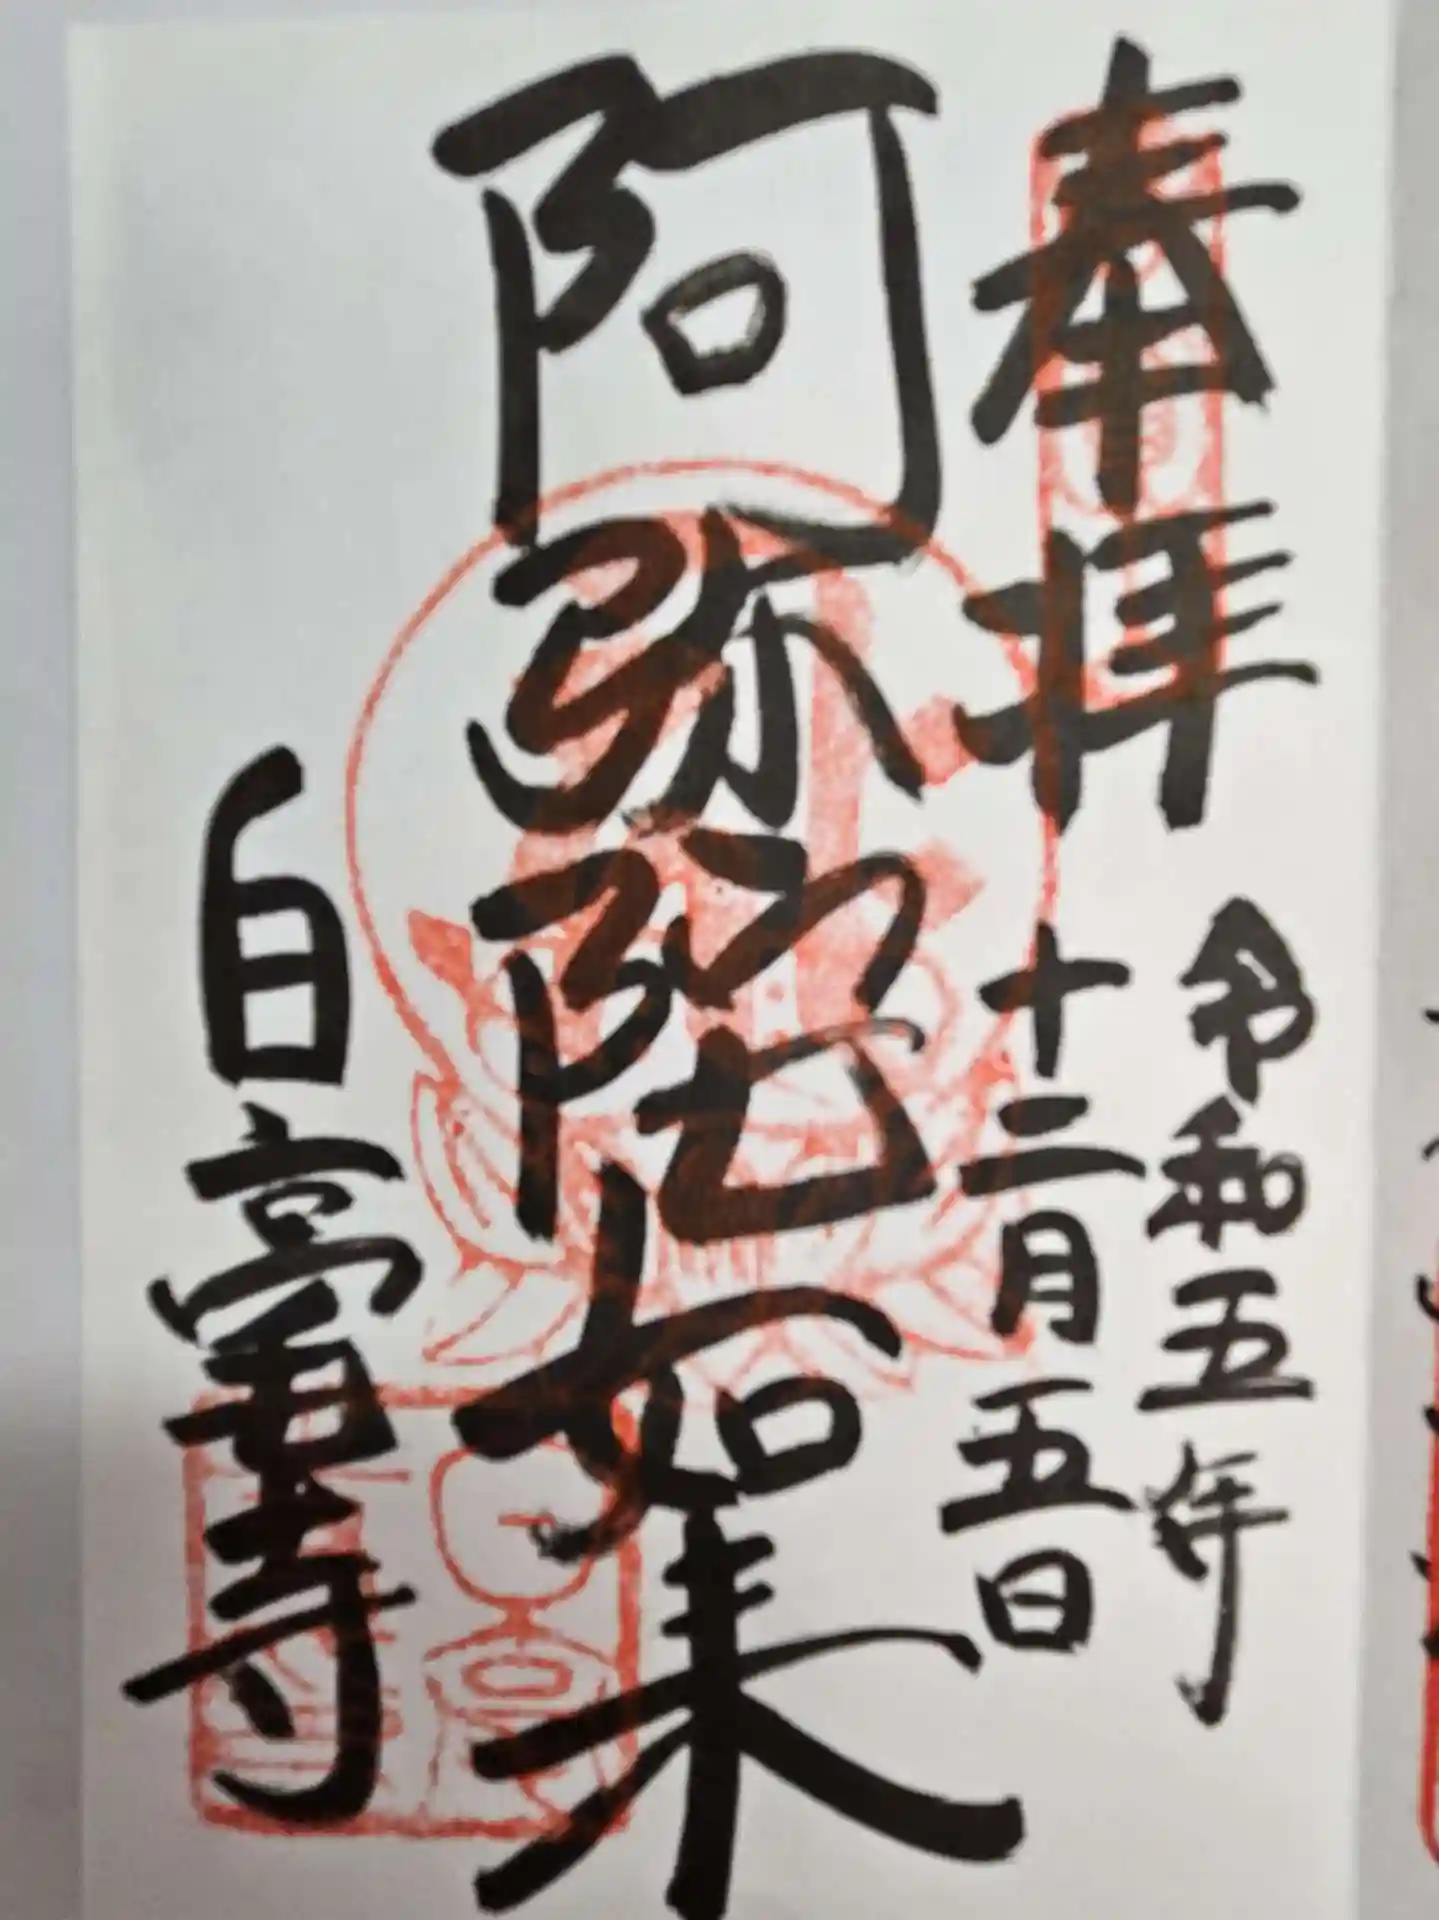 奉拝
令和五年
十二月五日
阿弥陀如来
白毫寺